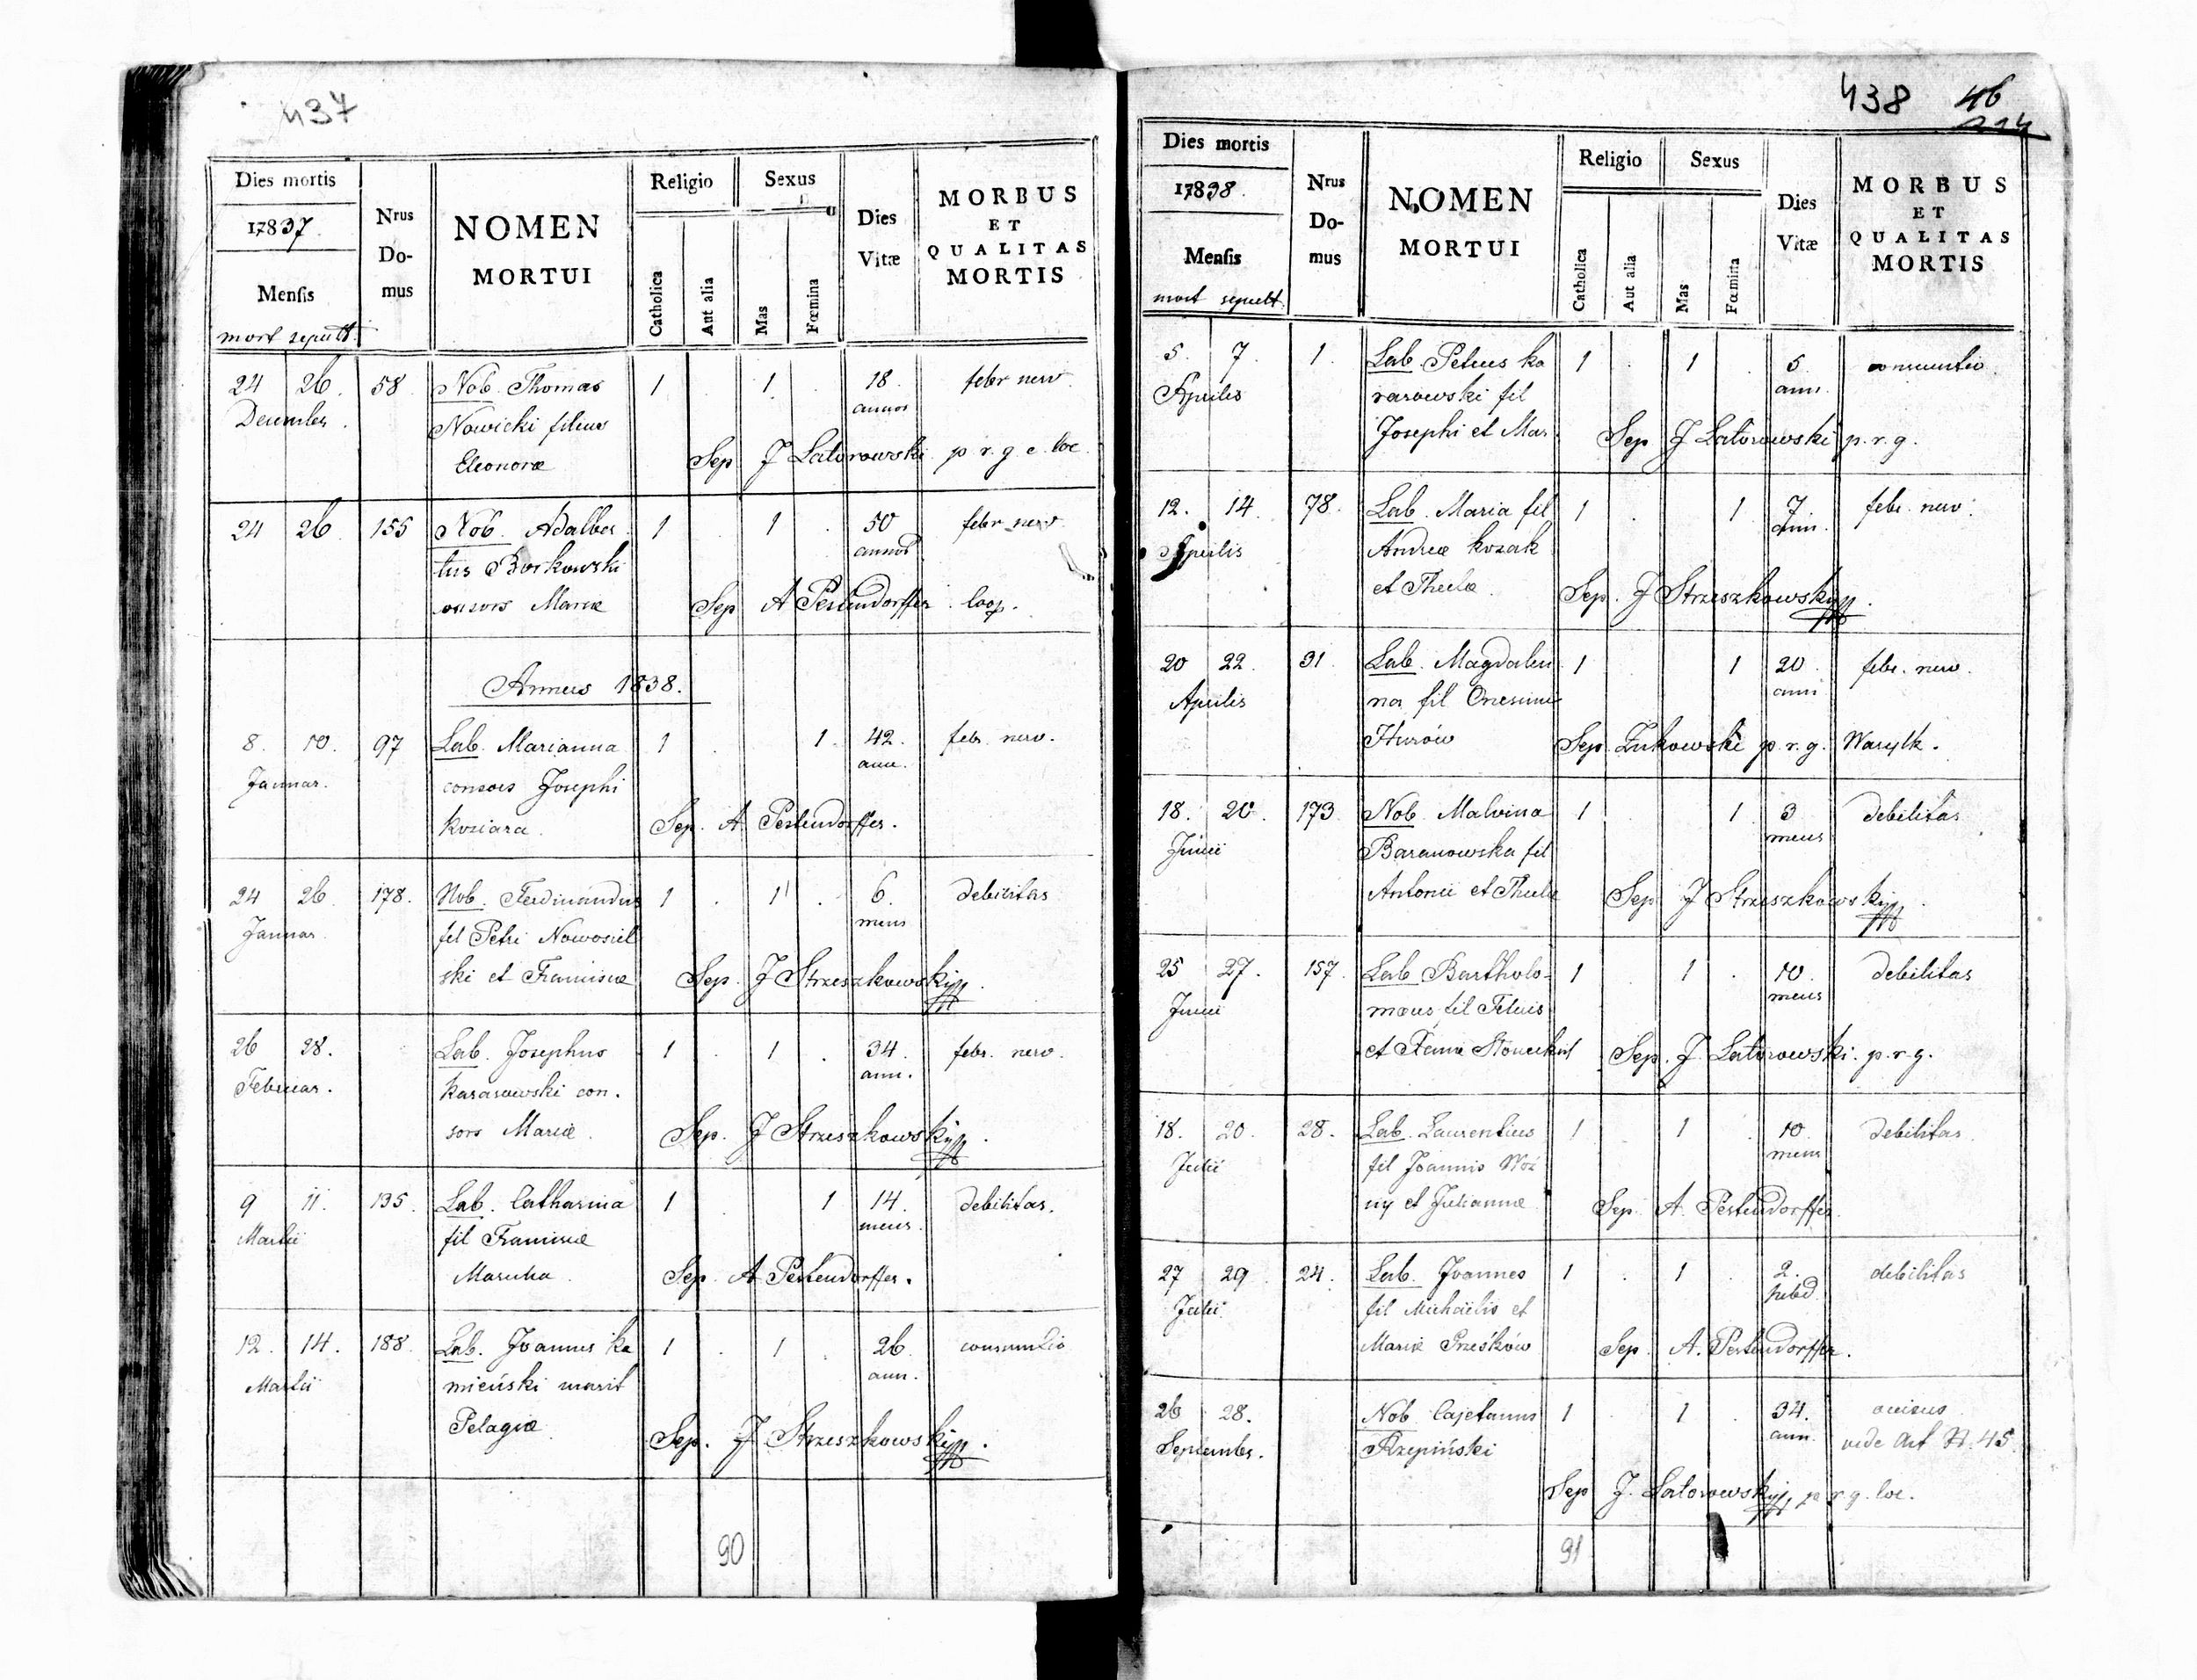 437
Dies mortis
17837.
Mensis
mort sepult.
Nrus
Do-
mus
NOMEN
MORTUI
Religio
Catholica
Aut alia
Sexus
Mas
Fœmina
Dies
Vitæ
MORBUS
ET
QUALITAS
MORTIS
24 26. 58 Nob. Thomas 1 . 1 . 18. febr nerv.
December. Nowicki filius annor
Eleonoræ Sep J Latorowski p r. g. e. loc
24 26 155 Nob. Adalber 1 . 1 . 50 febr nerv
tus Borkowski annor
consors Mariæ Sep A Pestendorffer loop.
Annus 1838.
8. 10. 97 Lab. Marianna 1 . 1. 42. febr. nerv.
Januar. consors Josephi ann.
Koziara. Sep. A Pestendorffer.
24 26. 178. Nob. Ferdinandus 1 . 1 . 6. debilitas
Januar. fil Petri Nowosiel mens
ski et Franciscæ Sep. J Strzeszkowski
26 28. Lab. Josephus 1 . 1 . 34. febr. nerv.
Februar. Karasowski con. ann.
sors Mariæ. Sep. J Strzeszkowski
9 11. 135. Lab. Catharina 1 . 1 14. debilitas.
Martii fil Franciscæ mens.
Sep. A Pestendorffer.
12. 14. 188. Lab. Joannes Ka 1 . 1 . 26. consumtio
Martii mieński marit ann.
Pelagiæ. Sep. J Strzeszkowski
90
438 46
214
Dies mortis
17838.
Mensis
mort sepult.
Nrus
Do-
mus
NOMEN
MORTUI
Religio
Catholica
Aut alia
Sexus
Mas
Fœmina
Dies
Vitæ
MORBUS
ET
QUALITAS
MORTIS
5. 7. 1. Lab. Petrus Ka 1 . 1 . 5. consumtio.
Aprilis rasowski fil ann.
Josephi et Mar. Sep J Latorowski p. r. g.
12. 14 78. Lab. Maria fil 1 . 1 7 febr. nerv.
Aprilis Andreæ Kozak ann.
et Theclæ. Sep. J Strzeszkowski
20 22. 31. Lab. Magdale 1 . 1 20. febr. nerv.
Aprilis na fil Onesimi ann
Hurów Sep. Żukowski p. r. g. Warylk.
18. 20. 173 Nob. Malvina 1 . 1 3 debilitas
Junii Baranowska fil mens
Antonii et Theclæ Sep J Strzeszkowski
25 27. 157. Lab. Bartholo- 1 . 1 . 10. debilitas
Junii mæus fil mens
et Sep. J. Latorowski. p. r. g.
18. 20. 28. Lab. Laurentius 1 . 1 . 10. debilitas.
Julii fil Joannis Woź mens
ny et Juliannæ Sep. A. Pestendorffer.
27 29 24. Lab. Joannes 1 . 1 . 2. debilitas
Julii fil Michaëlis et hebd.
Mariæ Prześków Sep. A. Pestendorffer.
26 28. Nob. Cajetanus 1 . 1 . 34. occisus
Septembr. Rzepiński ann. vide Act N. 45.
Sep J. Latorowski p. r. g. loc.
91